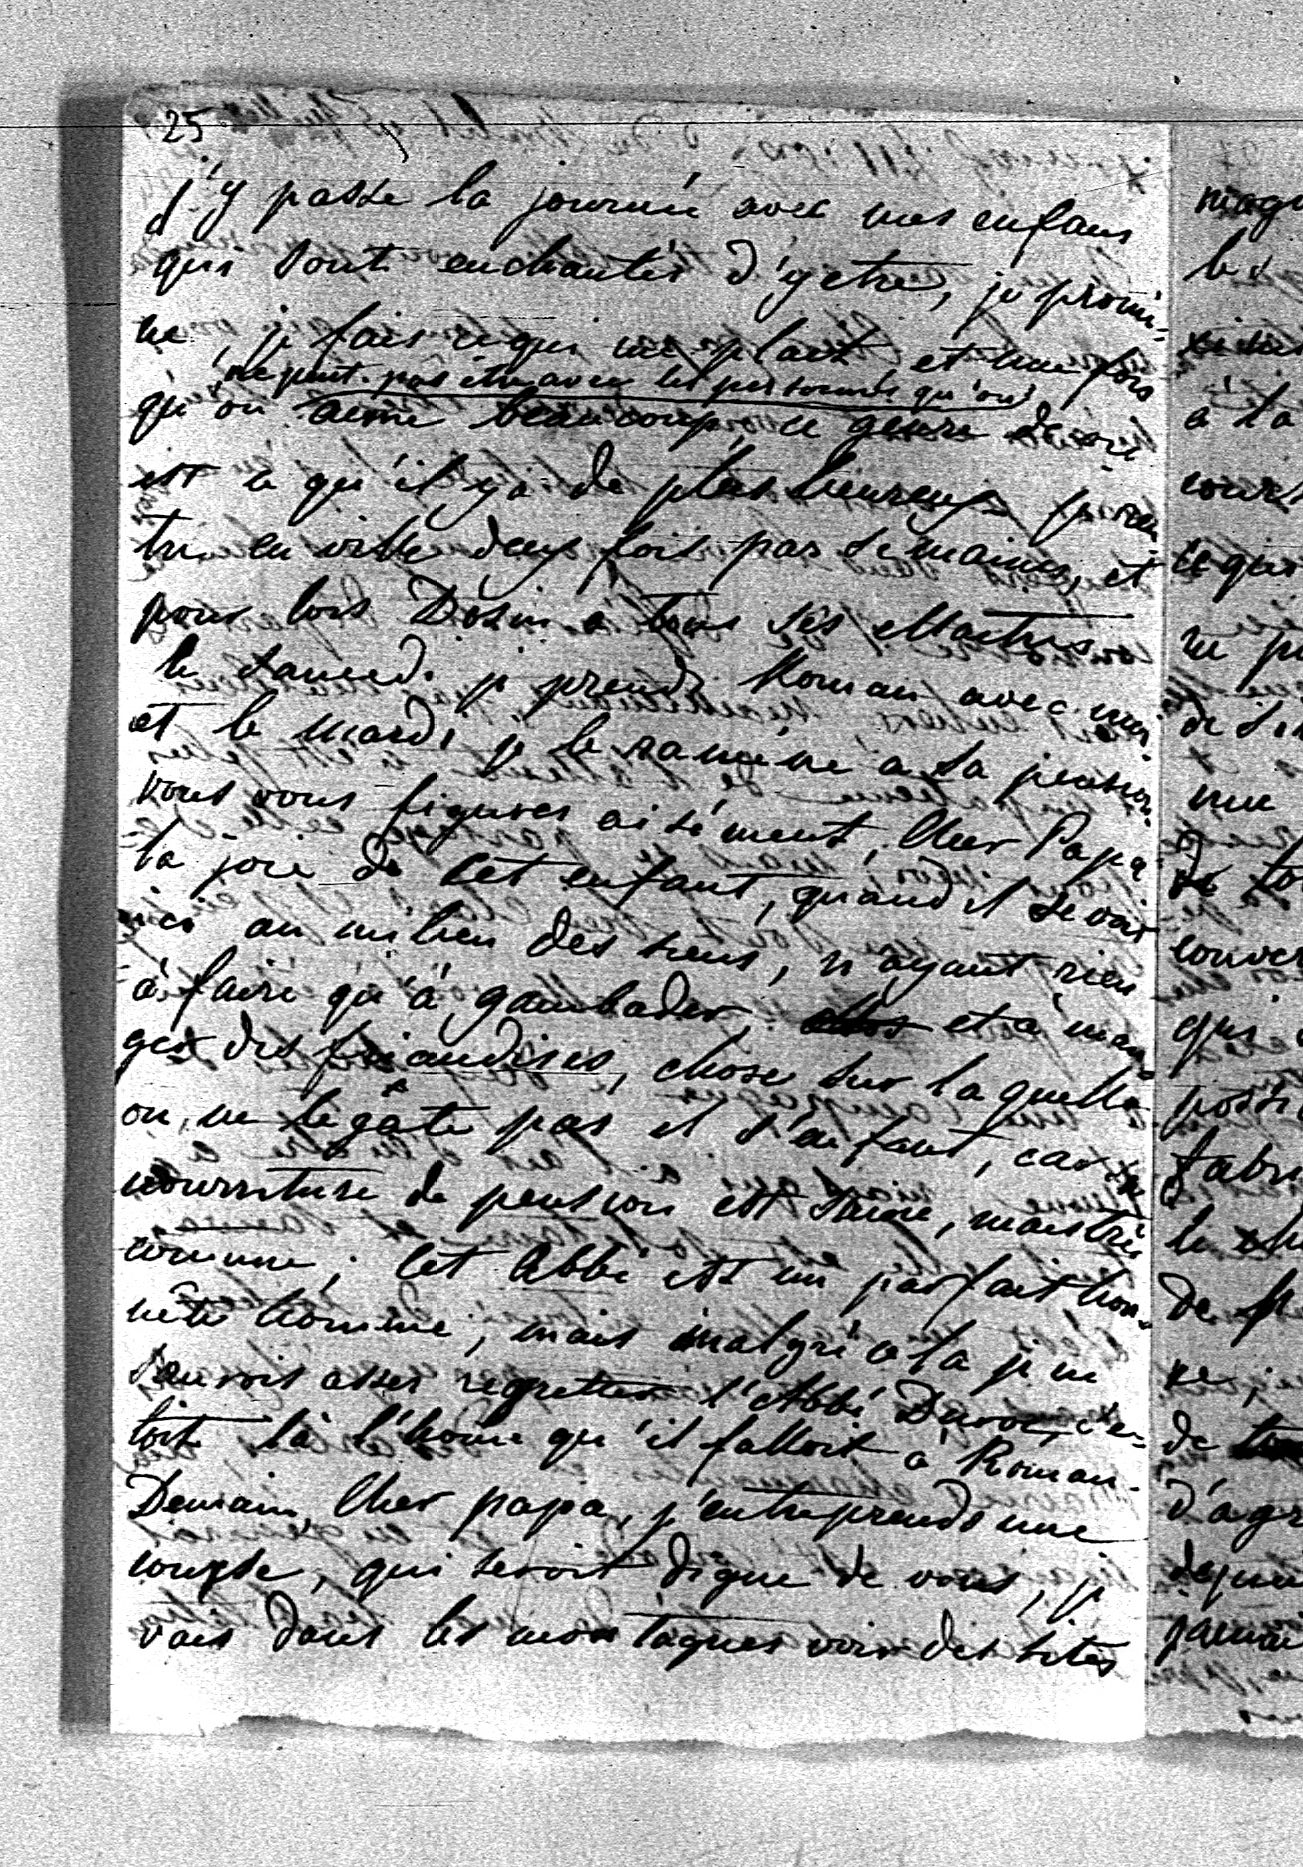 25
j'y passe la journée avec mes enfans
qui sont enchantés d'y etre, je promè-
ne, je fais ce qui me plait et une fois
ne peut pas être avec les personnes qu'on
qu'on aime beaucoup, ce genre de vie
est ce qu'il y a de plus heureux j'
en ville deux fois par semaine, et
pour lors Dosin a tous ses Maitres
le samedi je prends Roman avec moi
et le mardi je le ramène à sa pension
vous vous figures aisément, Cher Papa
la joie de cet enfant, quand il se voit
ici au milieu des siens, n'ayant rien
à faire qu'à gambader, et à man-
ger des friandises, chose sur laquelle
on ne le gâte pas il s'en faut, car la
nourriture de pension est saine, mais très
comune; Cet Abbé est un parfait hon-
nête homme, mais malgré cela je ne
saurois asses regretter l'Abbé Duroc, c'é-
toit là l'home qu'il falloit à Roman.
Demain Cher papa, j'entreprends une
course, qui seroit digne de vous, je
vais dans les montagnes voir des sites
le
à la
cours
ce qui
une
qui
de